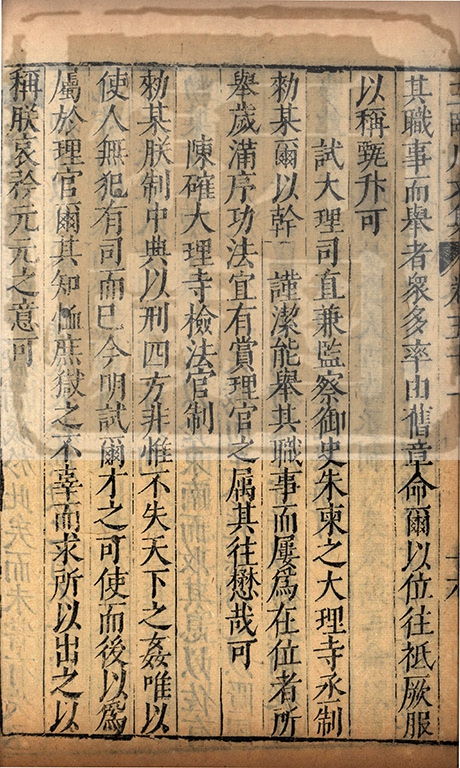 其職事而舉者衆多率由舊章命爾以位往祗厥服
以稱甄升可
試大理司直兼監察御史朱柬之大理寺丞制
勑某爾以幹謹潔能舉其職事而屢爲在位者所
舉歲滿序功法宜有賞理官之属其往懋哉可
陳確大理寺檢法官制
勑某朕制中典以刑四方非惟不失天下之姦唯以
使人無犯有司而已今明試爾才之可使而後以爲
屬於理官爾其知恤庶獄之不幸而求所以出之以
稱朕哀矜元元之意可